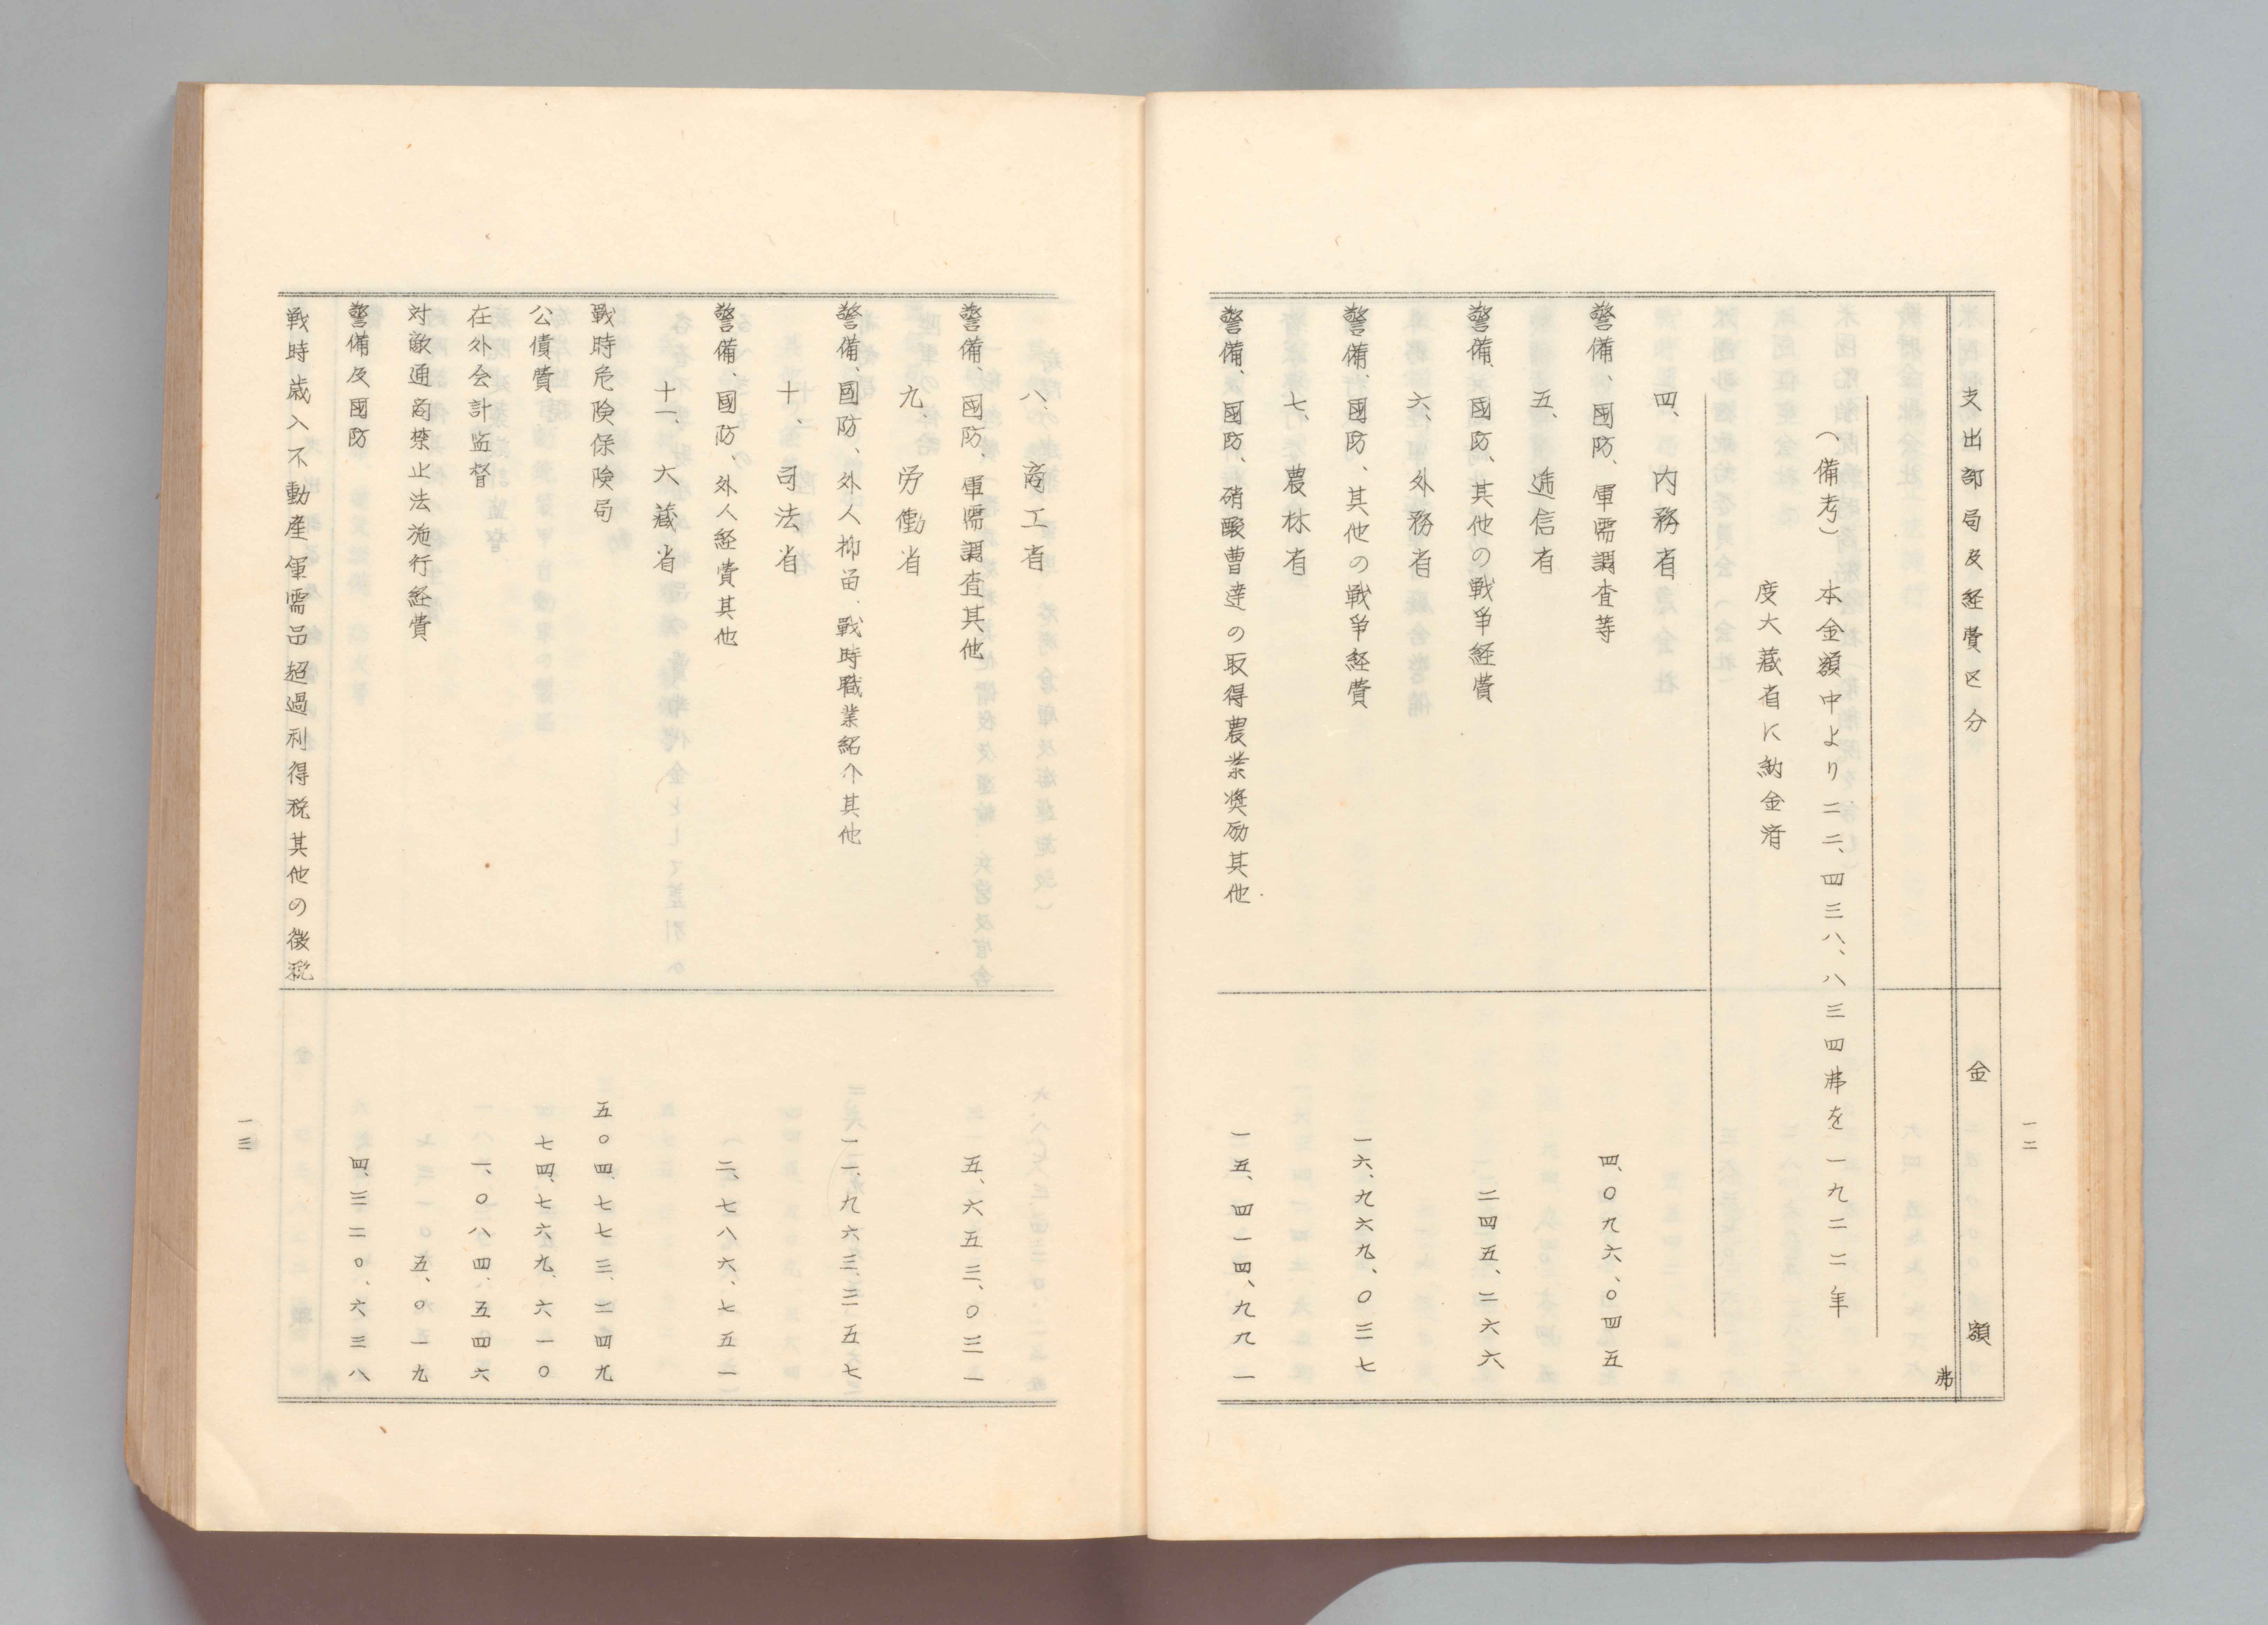 一二
支出部局及経費区分 金額
弗
(備考) 本金額中より二二、四三八、八三四弗を一九二二年
度大藏省に納金済
四、内務省
警備、國防、軍需調査等 四、〇九六、〇四五
五、逓信省
警備、國防、其他の戦争経費 二四五、二六六
六、外務省
警備、國防、其他の戦争経費 一六、九六九、〇三七
七、農林省
警備、國防、硝酸曹達の取得農業奨励其他 一五、四一四、九九一
八、商工省
警備、國防、軍需調査其他 五、六五三、〇三一
九、労働省
警備、國防、外人抑留、戰時職業紹介其他 一一、九六三、三五七
十、司法省
警備、國防、外人経費其他 二、七八六、七五一
十一、大藏省
戰時危険保険局 五〇四、七七三、二四九
公債費 七四、七六九、六一〇
在外会計監督 一、〇八四、五四六
対敵通商禁止法施行経費 五、〇一九
警備及國防 四、三二〇、六三八
戦時歳入不動産軍需品超過利得税其他の徴税
一三